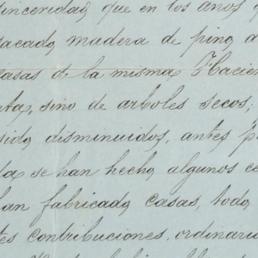 sinceridad, que en los años
sacado, madera de pino,
casas de la misma Hacien
ta, sino de arboles secos;
sido, disminuidos, antes p
se han hecho, algunos
han fabricado, casas, todo,
tes contribuciones, ordinari